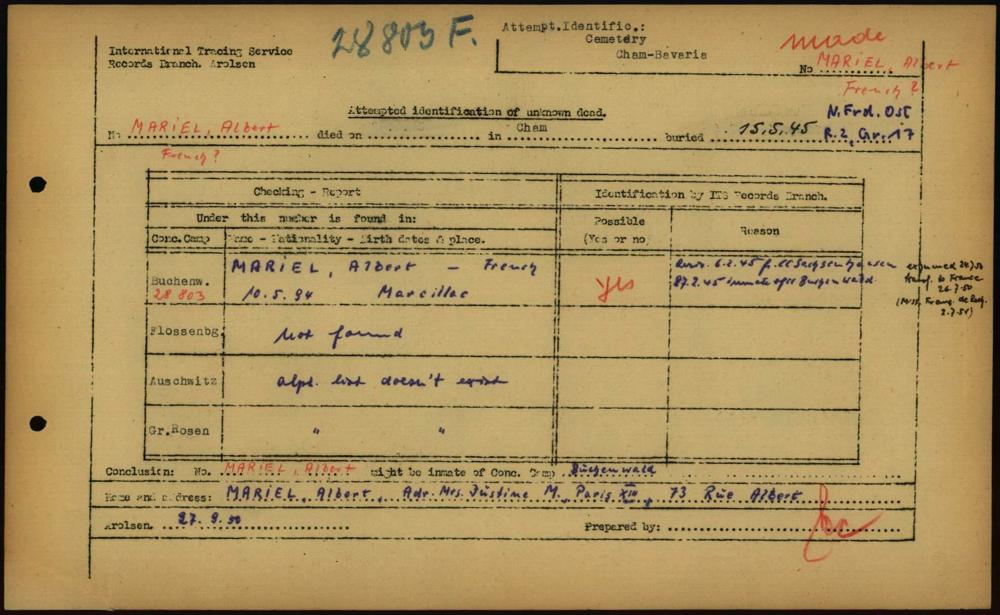 28 803 F.
Attempt.Identific.:
Cemetery
Cham-Bavaria
made
International Tracing Service
Records Branch. Arolsen
No MARIEL, Albert
French ?
Attempted identification of unknown dead.
N. Frd. Ost
R. 2, Gr. 17
No MARIEL, Albert died on in Cham buried 15.5.45
French ?
Checking - Report
Identification by ITS Records Branch.
Under this number is found in:
Possible
(Yes or no)
Reason
Conc.Camp
Name - Nationality - Birth dates & place.
Buchenw.
28 803
MARIEL, Albert - French
10.5.94 Marcillac
yes
6.2.45 f. CC Sachsenhausen
inmate of CC Buchenwald.
exhumed
to France
26.7.50
2.7.51)
Flossenbg.
Not found
Auschwitz
alph. list doesn't exist
Gr.Rosen
" "
Conclusion: No. MARIEL, Albert might be inmate of Conc. Camp Buchenwald
Name and address: MARIEL, Albert, Adr. Mrs. Justine M., Paris XIII, 73 Rue Albert
Arolsen. 27. 9. 50
Prepared by: